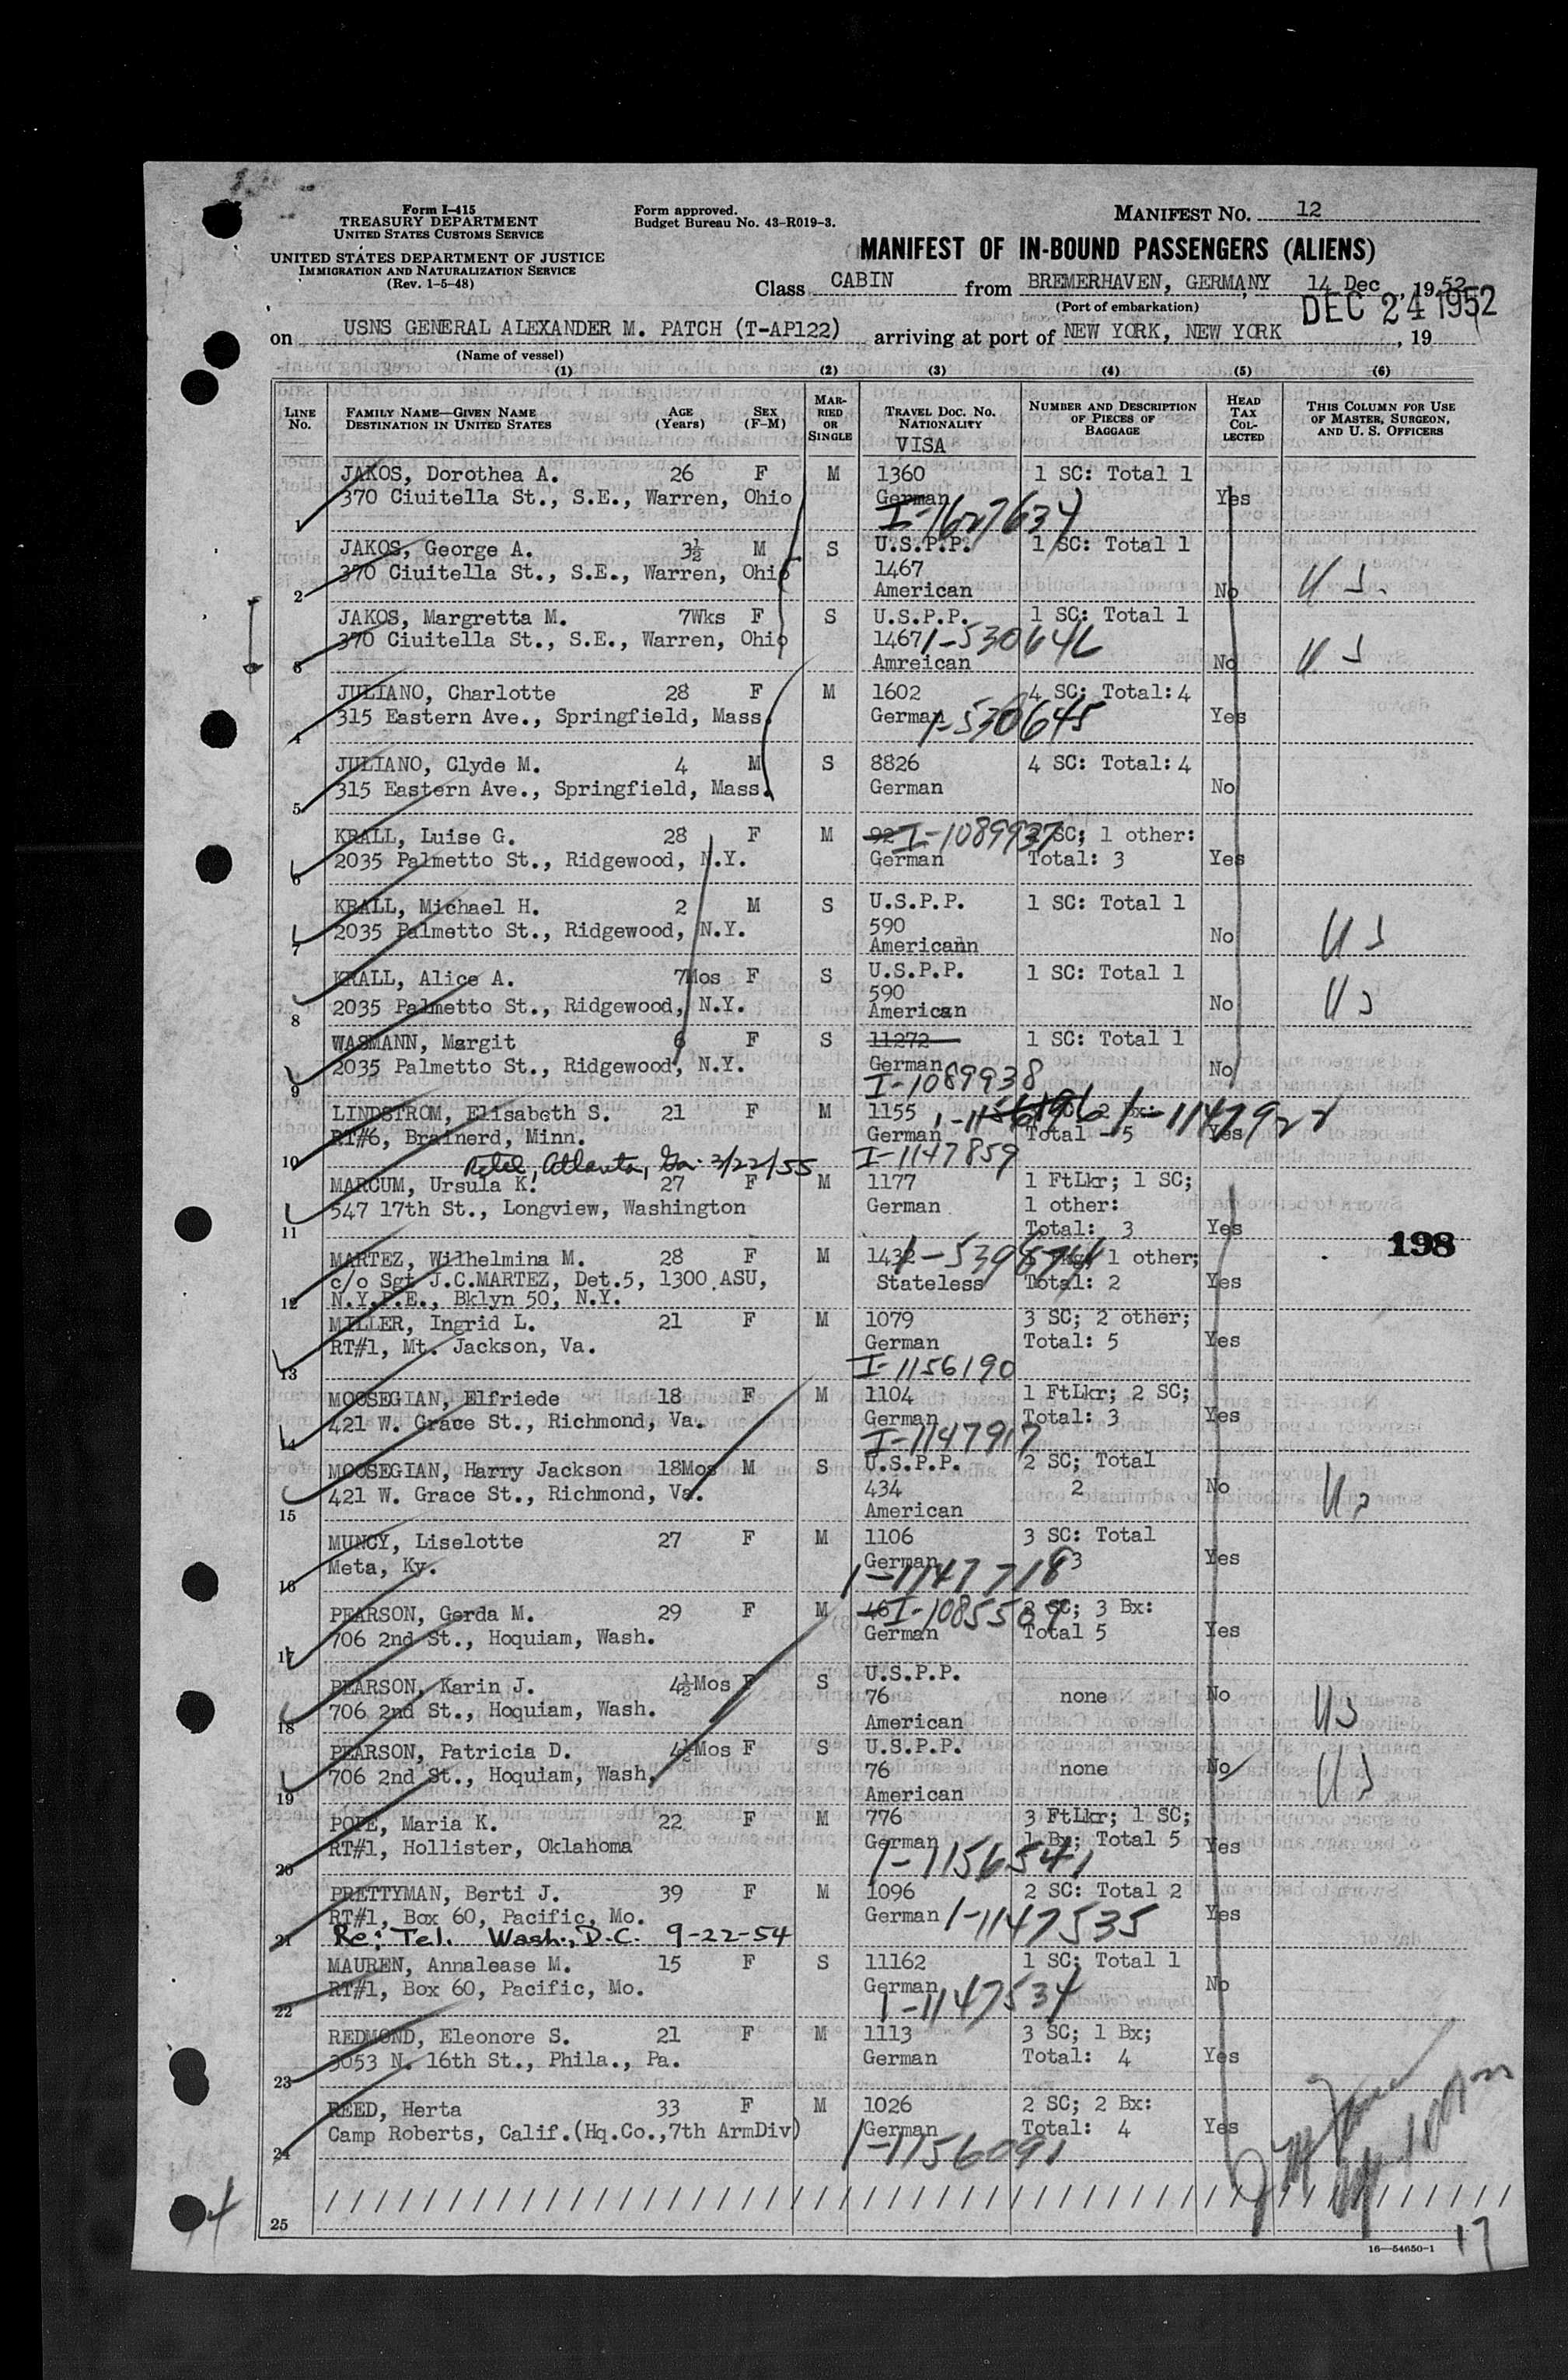 Form I-415
TREASURY DEPARTMENT
UNITED STATES CUSTOMS SERVICE
UNITED STATES DEPARTMENT OF JUSTICE
IMMIGRATION AND NATURALIZATION SERVICE
(Rev. 1-5-48)
Form approved.
Budget Bureau No. 43-R019-3.
MANIFEST NO. 12
MANIFEST OF IN-BOUND PASSENGERS (ALIENS)
Class CABIN from BREMERHAVEN, GERMANY, 14 Dec, 1952
(Port of embarkation)
DEC 24 1952
on USNS GENERAL ALEXANDER M. PATCH (T-AP122) arriving at port of NEW YORK, NEW YORK, 19
(Name of vessel)
(1) (2) (3) (4) (5) (6)
LINE NO. FAMILY NAME—GIVEN NAME DESTINATION IN UNITED STATES AGE (YEARS) SEX (F-M) MARRIED OR SINGLE TRAVEL DOC. NO. NATIONALITY NUMBER AND DESCRIPTION OF PIECES OF BAGGAGE HEAD TAX COLLECTED THIS COLUMN FOR USE OF MASTER, SURGEON, AND U. S. OFFICERS
VISA
JAKOS, Dorothea A. 26 F M 1360 1 SC: Total 1
370 Ciuitella St., S.E., Warren, Ohio German Yes
1 I-1627634
JAKOS, George A. 3½ M S U.S.P.P. 1 SC: Total 1
370 Ciuitella St., S.E., Warren, Ohio 1467
2 American No US.
JAKOS, Margretta M. 7Wks F S U.S.P.P. 1 SC: Total 1
370 Ciuitella St., S.E., Warren, Ohio 1467 1-530646
3 Amreican No US
JULIANO, Charlotte 28 F M 1602 4 SC; Total:4
315 Eastern Ave., Springfield, Mass. German 1-530645 Yes
4
JULIANO, Clyde M. 4 M S 8826 4 SC: Total:4
315 Eastern Ave., Springfield, Mass. German No
5
KRALL, Luise G. 28 F M 92 I-1089937 SC; 1 other:
2035 Palmetto St., Ridgewood, N.Y. German Total: 3 Yes
6
KRALL, Michael H. 2 M S U.S.P.P. 1 SC: Total 1
2035 Palmetto St., Ridgewood, N.Y. 590
7 Americann No US
KRALL, Alice A. 7Mos F S U.S.P.P. 1 SC: Total 1
590
2035 Palmetto St., Ridgewood, N.Y. American No US
8
WASMANN, Margit 6 F S 11272 1 SC: Total 1
2035 Palmetto St., Ridgewood, N.Y. German No
9 I-1089938
LINDSTROM, Elisabeth S. 21 F M 1155 2 Bx: 1-1147922
RT#6, Brainerd, Minn. German Total - 5 Yes
10 Retel, Atlanta, Ga. 3/22/55 I-1147859
MARCUM, Ursula K. 27 F M 1177 1 FtLkr; 1 SC;
547 17th St., Longview, Washington German 1 other:
11 Total: 3 Yes
198
MARTEZ, Wilhelmina M. 28 F M 1432 1 other;
c/o Sgt J.C.MARTEZ, Det.5, 1300 ASU, Stateless Total: 2 Yes
12 N.Y.P.E., Bklyn 50, N.Y.
MILLER, Ingrid L. 21 F M 1079 3 SC; 2 other;
RT#1, Mt. Jackson, Va. German Total: 5 Yes
13 I-1156190
MOOSEGIAN, Elfriede 18 F M 1104 1 FtLkr; 2 SC;
421 W. Grace St., Richmond, Va. German Total: 3 Yes
14 I-1147917
MOOSEGIAN, Harry Jackson 18Mos M S U.S.P.P. 2 SC; Total
421 W. Grace St., Richmond, Va. 434 2 No US
15 American
MUNCY, Liselotte 27 F M 1106 3 SC: Total
Meta, Ky. German 3 Yes
16 1-1147718
PEARSON, Gerda M. 29 F M 46 I-1085509 2 SC; 3 Bx:
706 2nd St., Hoquiam, Wash. German Total 5 Yes
17
PEARSON, Karin J. 4½Mos F S U.S.P.P.
706 2nd St., Hoquiam, Wash. 76 none No US
18 American
PEARSON, Patricia D. 4½Mos F S U.S.P.P.
706 2nd St., Hoquiam, Wash. 76 none No US
19 American
POPE, Maria K. 22 F M 776 3 FtLkr; 1 SC;
RT#1, Hollister, Oklahoma German 1 Bx; Total 5 Yes
20 1-1156541
PRETTYMAN, Berti J. 39 F M 1096 2 SC: Total 2
RT#1, Box 60, Pacific, Mo. German 1-1147535 Yes
21 Re: Tel. Wash., D.C. 9-22-54
MAUREN, Annalease M. 15 F S 11162 1 SC; Total 1
RT#1, Box 60, Pacific, Mo. German No
22 1-1147534
REDMOND, Eleonore S. 21 F M 1113 3 SC; 1 Bx;
3053 N. 16th St., Phila., Pa. German Total: 4 Yes
23
REED, Herta 33 F M 1026 2 SC; 2 Bx:
Camp Roberts, Calif.(Hq.Co.,7th ArmDiv) German Total: 4 Yes
24 1-1156091
25
16—54650-1
17